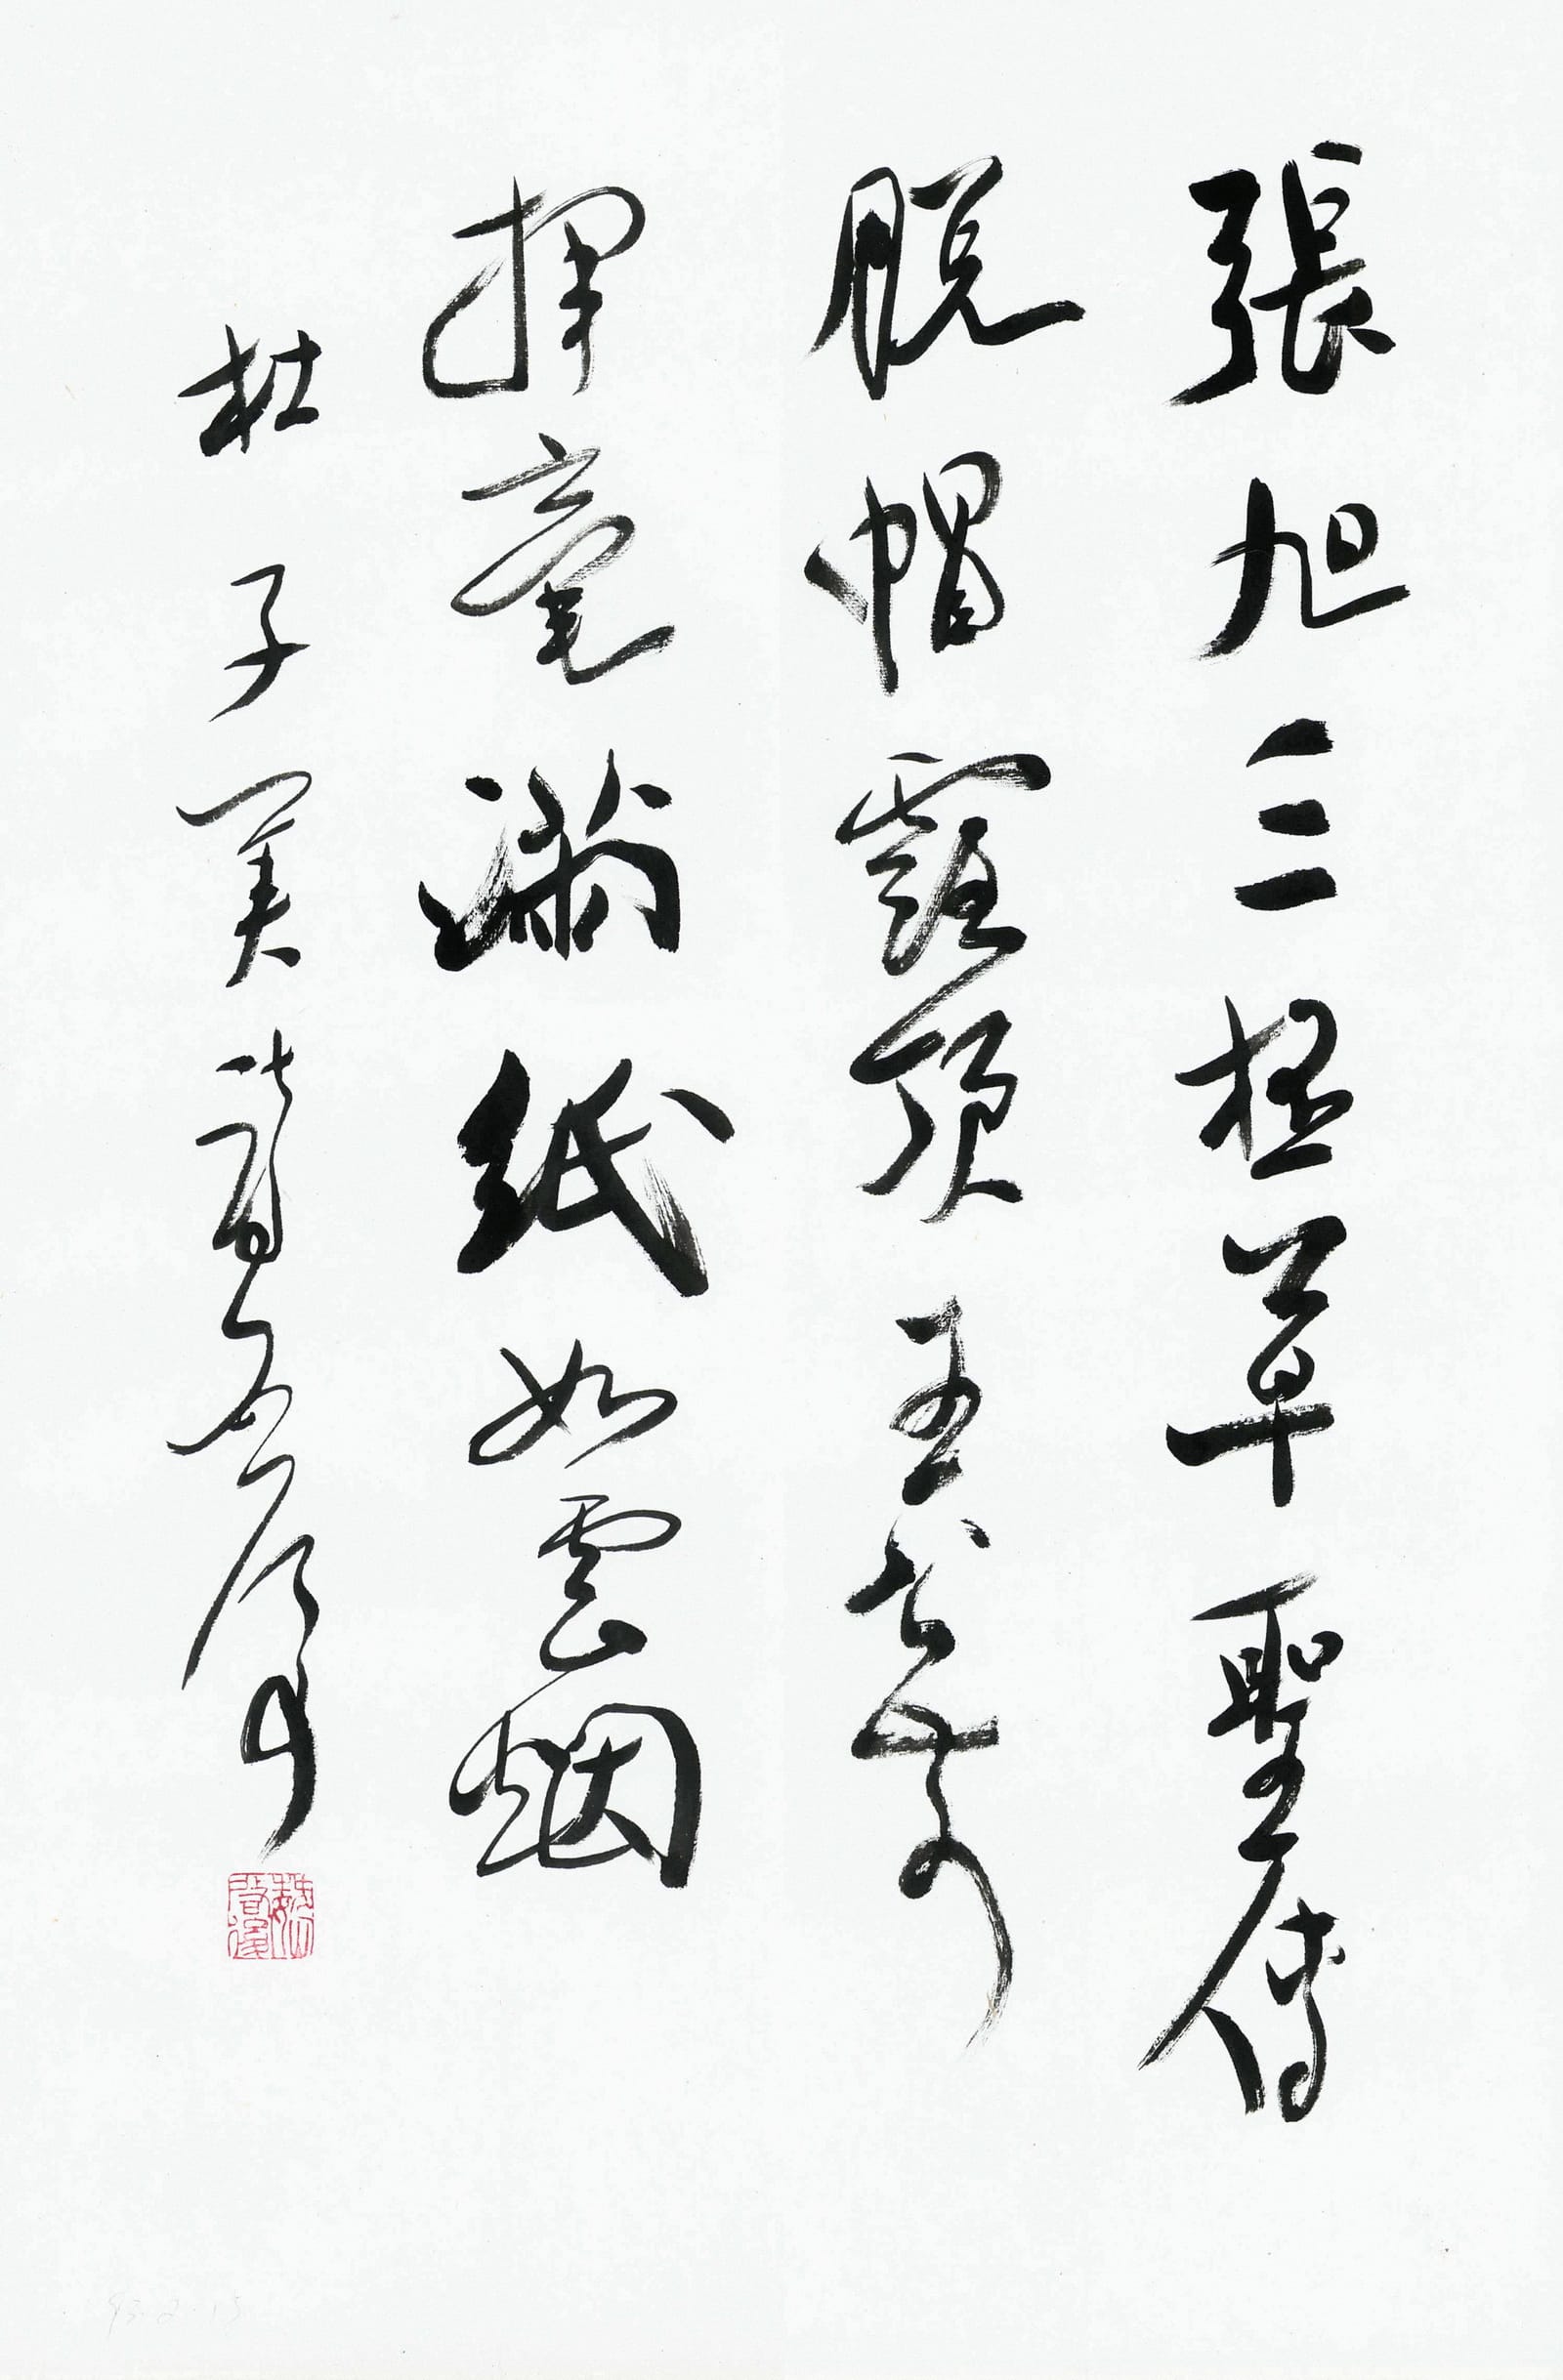 張旭三杯草聖傳
脱帽露頂王公前
揮毫滿紙如雲烟
杜子美
魏啓後